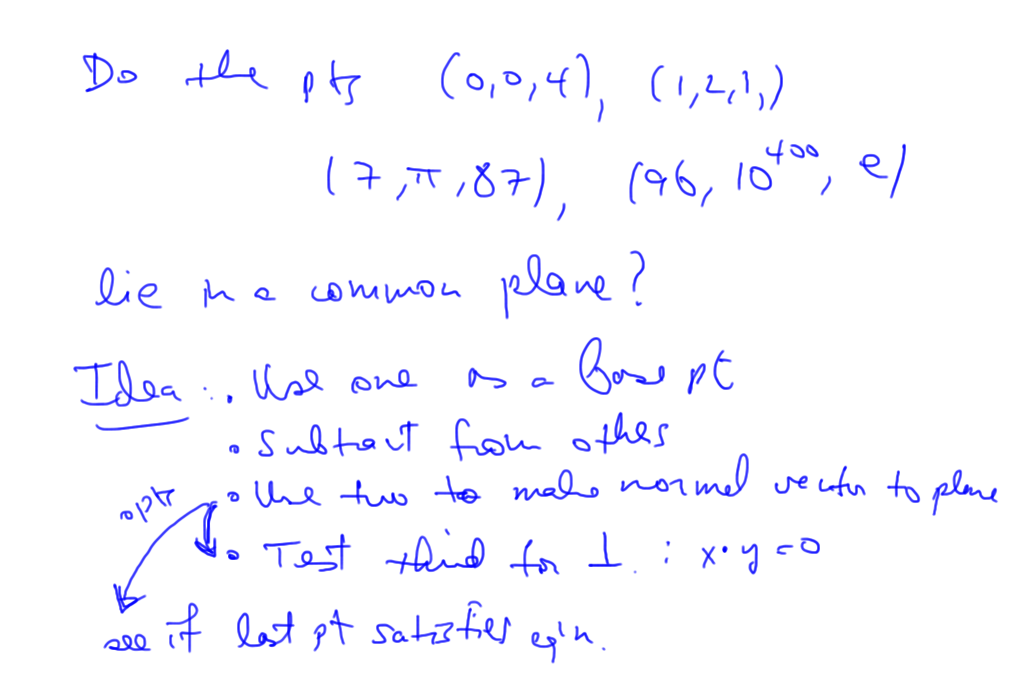 Do the pts (0,0,4), (1,2,1,)
(7,π,87), (96, 10^400, e)
lie in a common plane?
Idea: • Use one as a base pt
• Subtract from others
opt • Use two to make normal vector to plane
• Test third for ⊥ : x·y=0
see if last pt satisfies eq'n.